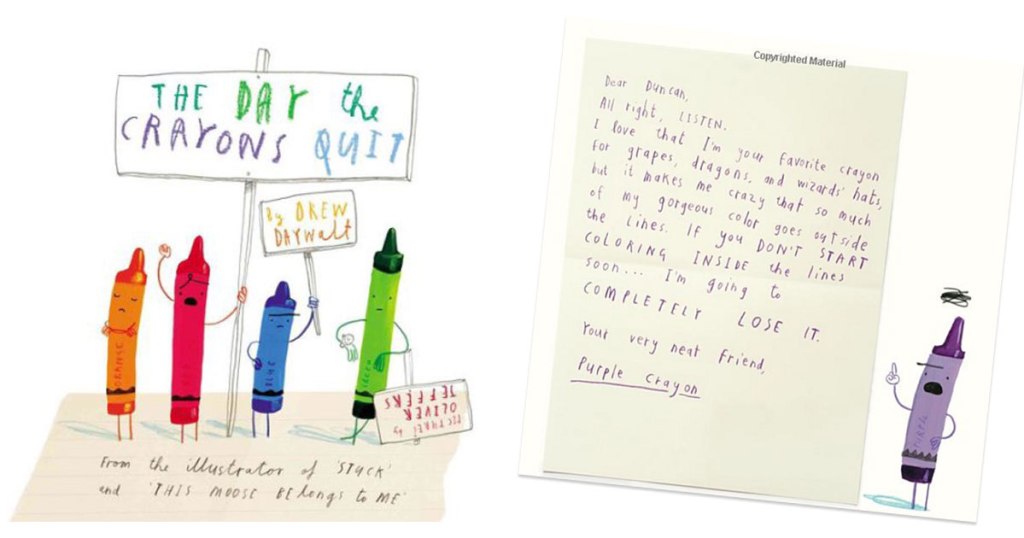 THE DAY the
CRAYONS QUIT
By DREW
DAYWalt
ORANGE
BLUE
GREEN
PICTURES by
OLIVER
JEFFERS
From the illustrator of 'STUCK'
and 'THIS MOOSE BElongs to ME'
Copyrighted Material
Dear Duncan,
All right, LISTEN.
I love that I'm your favorite crayon
for grapes, dragons, and wizards' hats,
but it makes me crazy that so much
of my gorgeous color goes outside
the lines. If you DON'T START
COLORING INSIDE the lines
soon... I'm going to
COMPLETELY LOSE IT.
Your very neat friend,
Purple Crayon
PURPLE